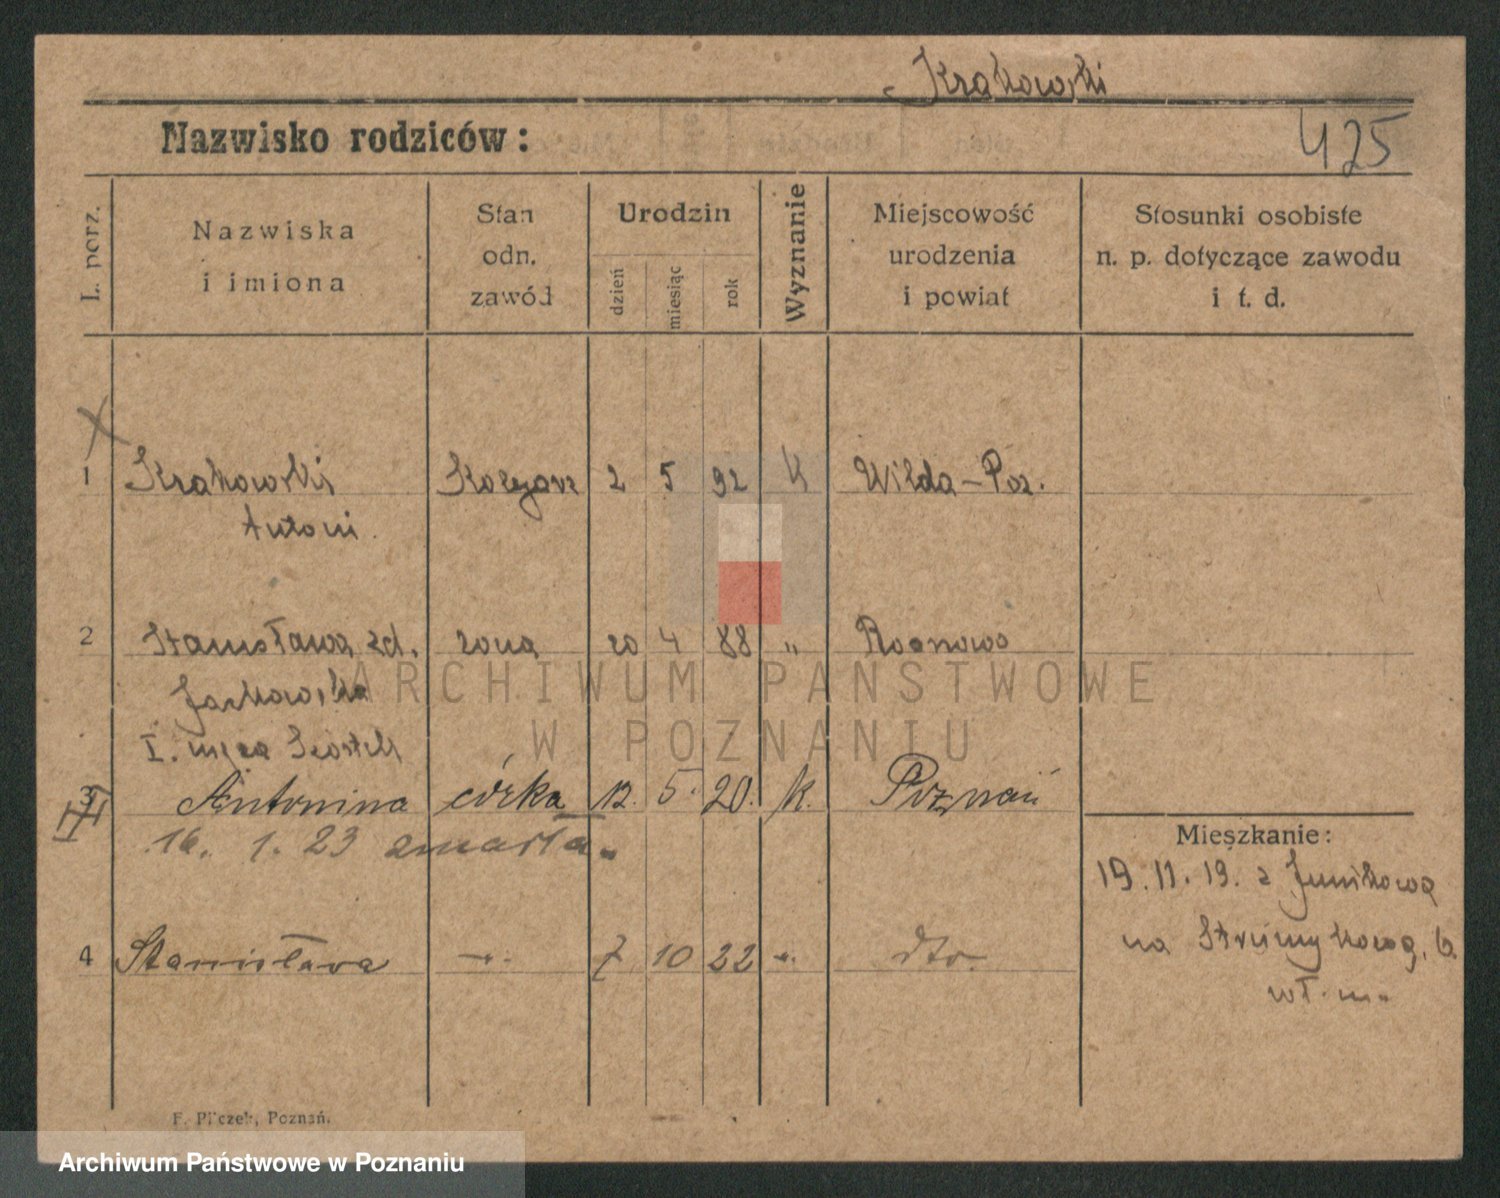 Krakowski
Nazwisko rodziców:
425
L. porz.
Nazwiska
i imiona
Stan
odn.
zawód
Urodzin
dzień
miesiąc
rok
Wyznanie
Miejscowość
urodzenia
i powiat
Stosunki osobiste
n. p. dotyczące zawodu
i t. d.
1 Krakowski Kolejarz 2 5 92 k Wilda-Poz.
Antoni
2 Stanisława zd. żona 20 4 88 " Rosnowo
I. męża
3 Antonina córka 12. 5. 20. k. Poznań
16. 1. 23 zmarła.
Mieszkanie:
19. 11. 19. z Junikowa
na 6.
wł. m.
4 Stanisława -"- 7 10 22 -". dto.
F. Pilczek, Poznań.
ARCHIWUM PAŃSTWOWE
W POZNANIU
Archiwum Państwowe w Poznaniu